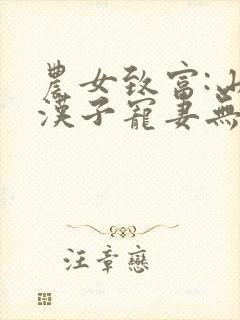 農女致富:山
漢子寵妻無
汪章戀